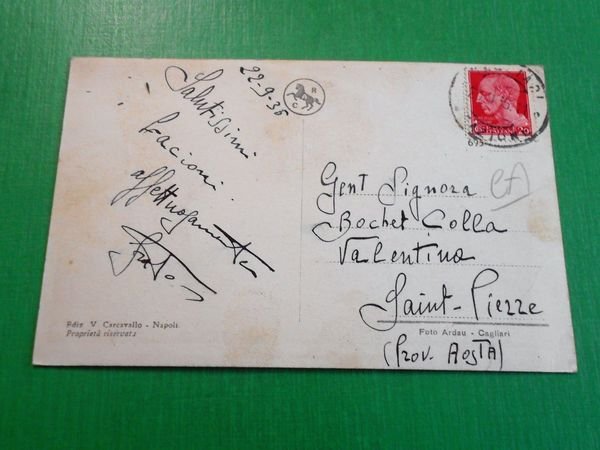 22-9-36
Salutissimi
bacioni
affettuosamente
Gent Signora
Bochet Colla
Valentina
Saint-Pierre
(Prov. Aosta)
Ediz V Carcavallo - Napoli
Proprietà riservata
Foto Ardau - Cagliari
R
C
20